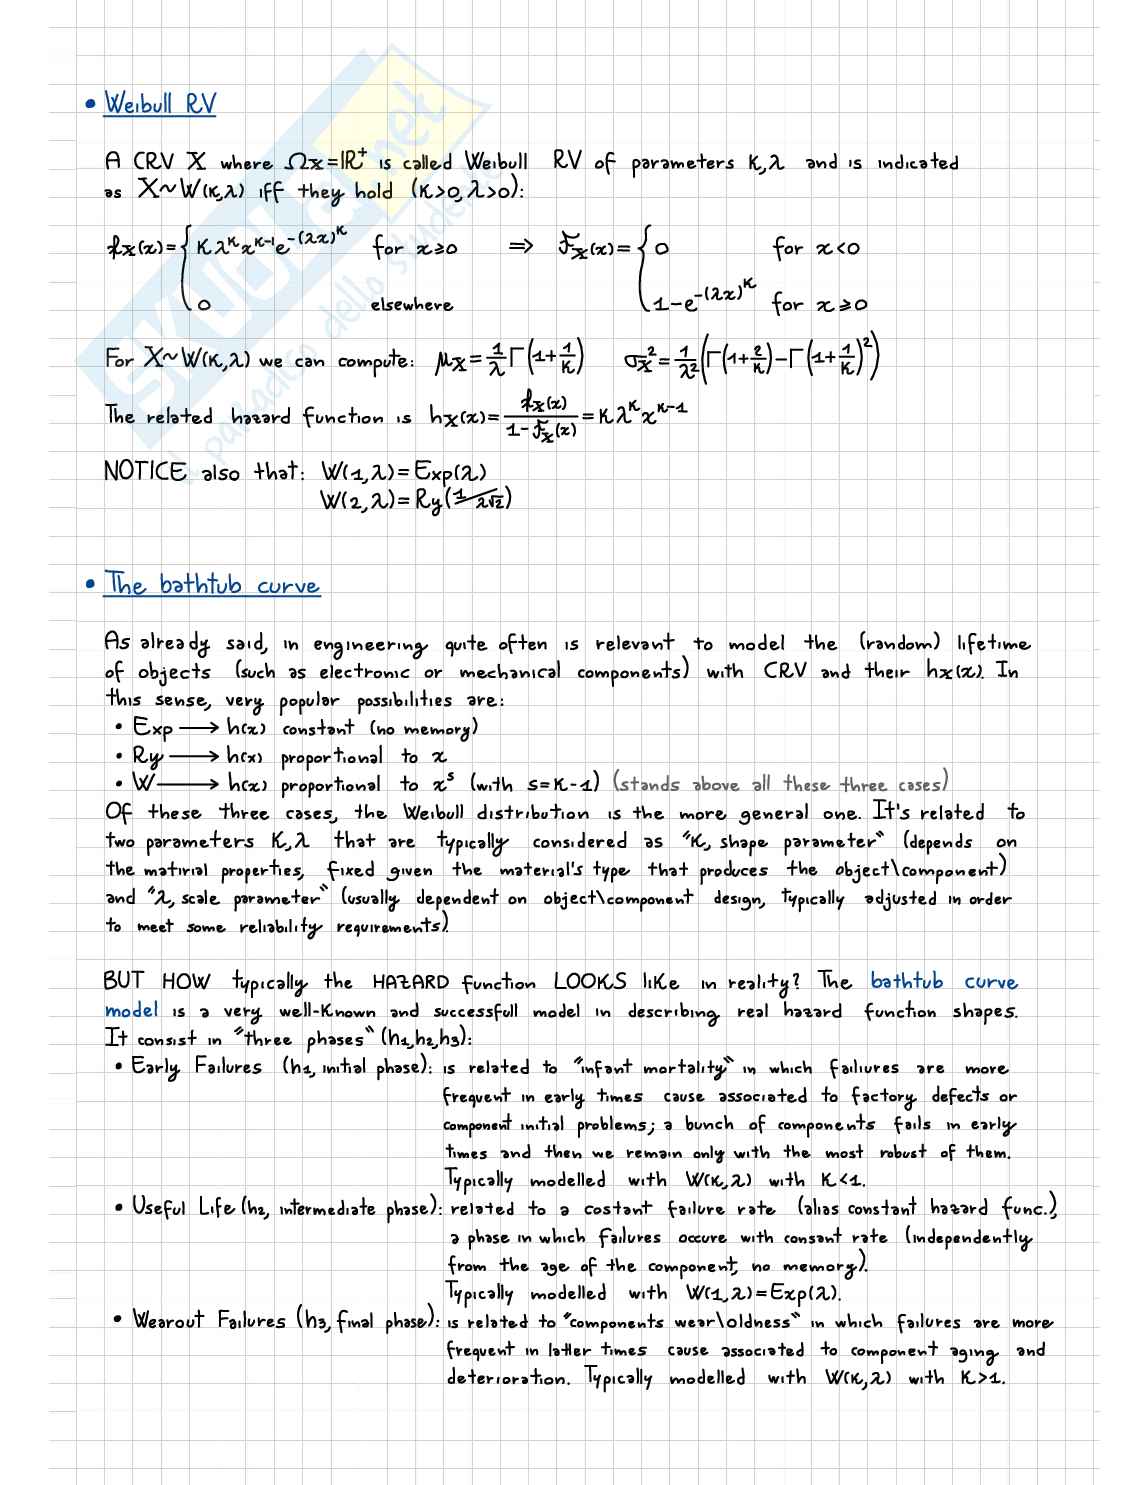 • Weibull RV
A CRV X where Ωx=ℝ⁺ is called Weibull RV of parameters K,λ and is indicated
as X~W(K,λ) iff they hold (K>0,λ>0):
fx(x)={ Kλᴷxᴷ⁻¹e^-(λx)ᴷ for x≥0 ⇒ Fx(x)={ 0 for x<0
0 elsewhere 1-e^-(λx)ᴷ for x≥0
For X~W(K,λ) we can compute: μx=1/λ Γ(1+1/K) σx²=1/λ²(Γ(1+2/K)-Γ(1+1/K)²)
The related hazard function is hx(x)=fx(x)/(1-Fx(x))=Kλᴷxᴷ⁻¹
NOTICE also that: W(1,λ)=Exp(λ)
W(2,λ)=Ry(1/λ√2)
• The bathtub curve
As already said, in engineering quite often is relevant to model the (random) lifetime
of objects (such as electronic or mechanical components) with CRV and their hx(x). In
this sense, very popular possibilities are:
• Exp → h(x) constant (no memory)
• Ry → h(x) proportional to x
• W → h(x) proportional to xˢ (with s=K-1) (stands above all these three cases)
Of these three cases, the Weibull distribution is the more general one. It's related to
two parameters K,λ that are typically considered as "K, shape parameter" (depends on
the matirial properties, fixed given the material's type that produces the object\component)
and "λ, scale parameter" (usually dependent on object\component design, typically adjusted in order
to meet some reliability requirements).
BUT HOW typically the HAZARD function LOOKS like in reality? The bathtub curve
model is a very well-known and successfull model in describing real hazard function shapes.
It consist in "three phases" (h1,h2,h3):
• Early Failures (h1, initial phase): is related to "infant mortality" in which failiures are more
frequent in early times cause associated to factory defects or
component initial problems; a bunch of components fails in early
times and then we remain only with the most robust of them.
Typically modelled with W(K,λ) with K<1.
• Useful Life (h2, intermediate phase): related to a costant failure rate (alias constant hazard func.),
a phase in which failures occure with consant rate (independently
from the age of the component, no memory).
Typically modelled with W(1,λ)=Exp(λ).
• Wearout Failures (h3, final phase): is related to "components wear\oldness" in which failures are more
frequent in latter times cause associated to component aging and
deterioration. Typically modelled with W(K,λ) with K>1.
SKUOLA.net
il paradiso dello studente